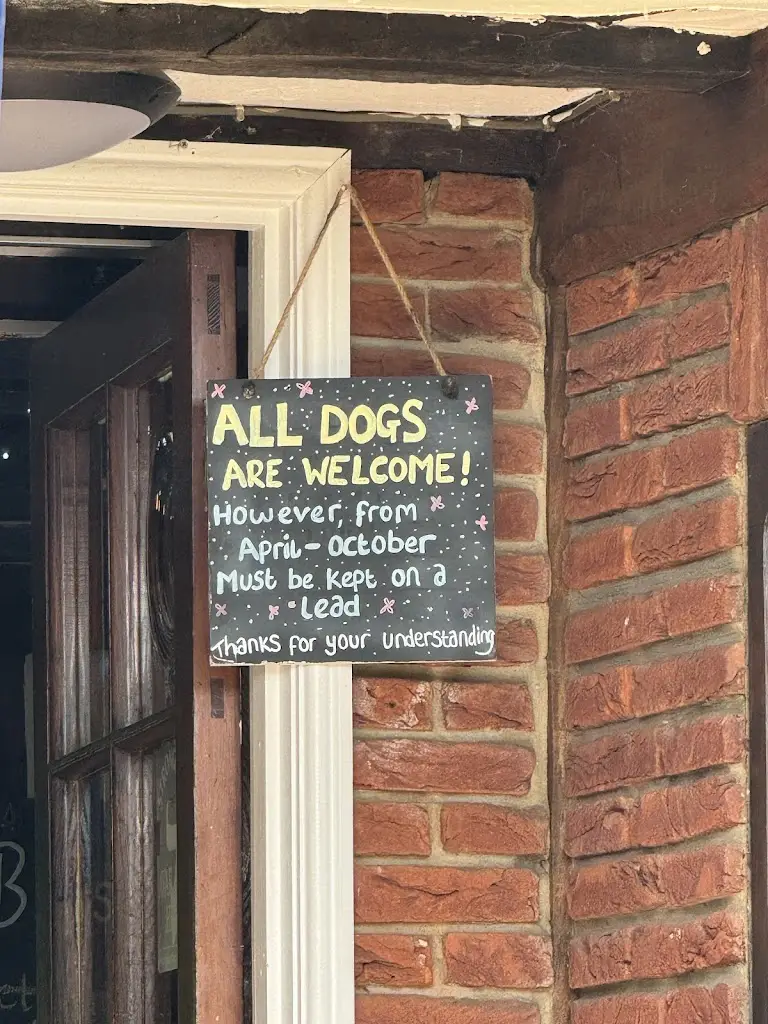 ALL DOGS
ARE WELCOME!
However, from
April - October
Must be kept on a
lead
Thanks for your understanding